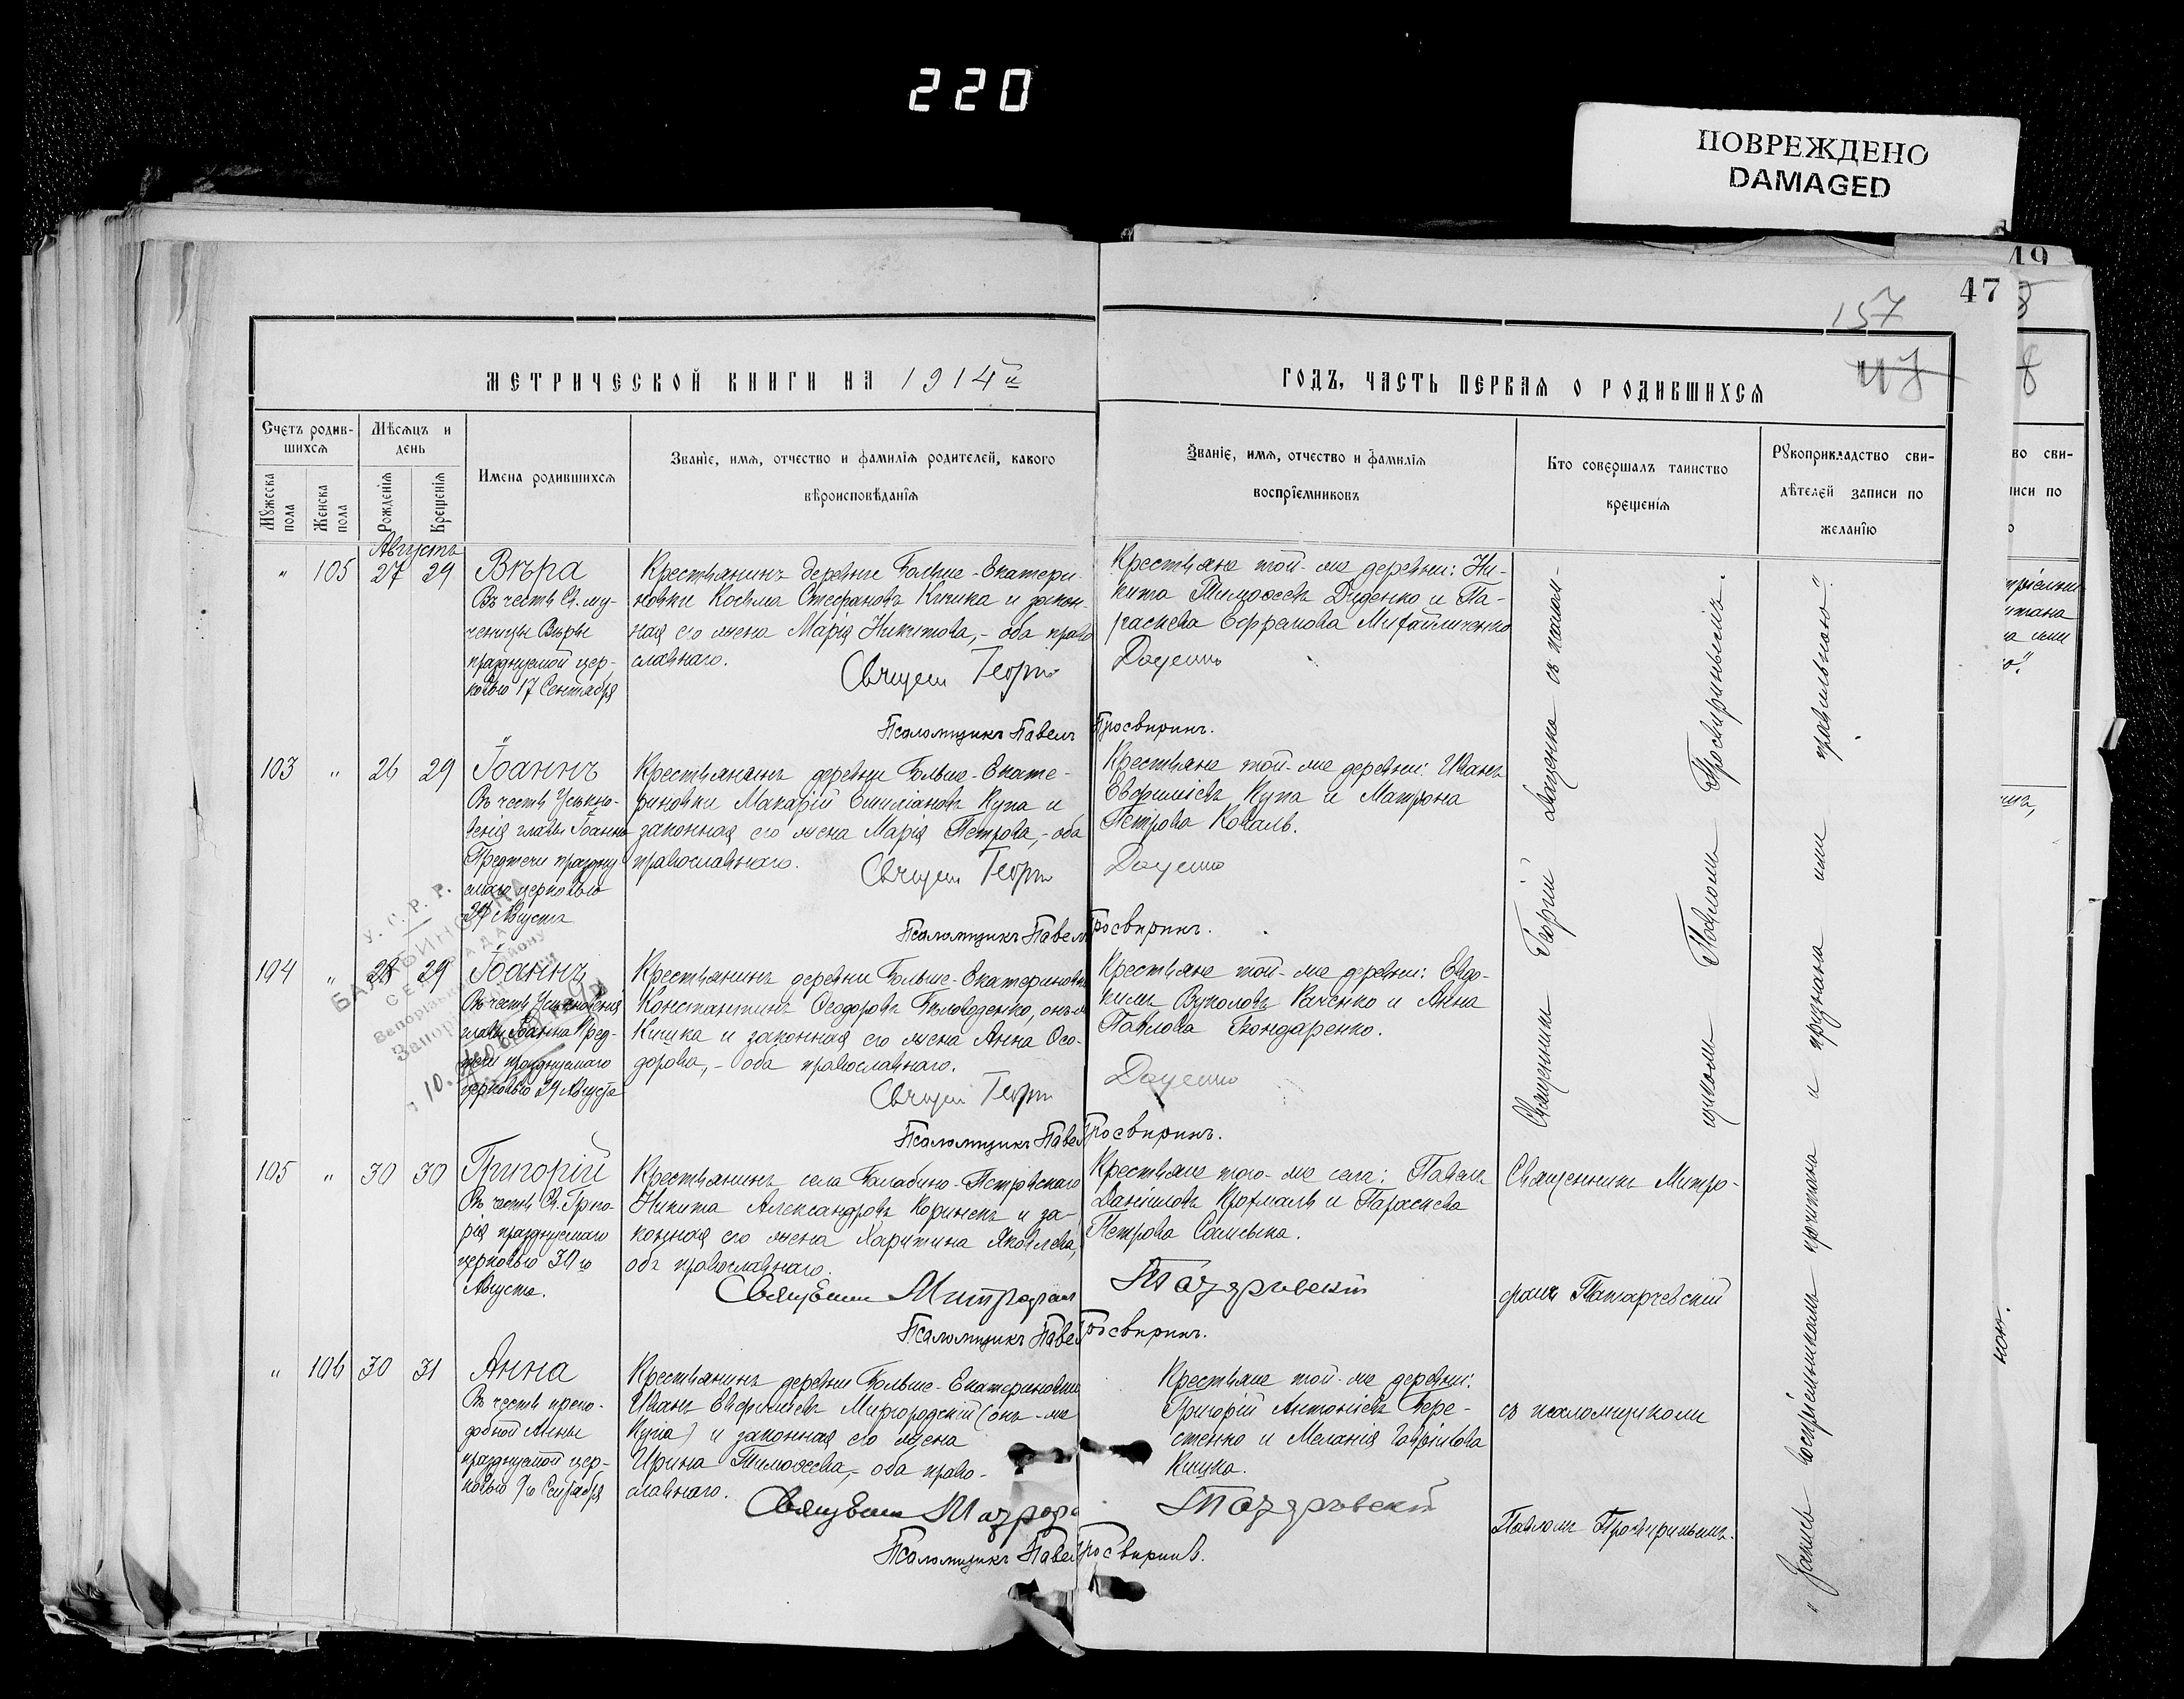 220
ПОВРЕЖДЕНО
DAMAGED
49
47
157
МЕТРИЧЕСКОЙ КНИГИ НА 1914й
ГОДЪ, ЧАСТЬ ПЕРВАЯ О РОДИВШИХСЯ
Счетъ родив-
шихся
Мужеска пола
Женска пола
Мѣсяцъ и
день
Рожденія
Крещенія
Имена родившихся
Званіе, имя, отчество и фамилія родителей, какого
вѣроисповѣданія
Званіе, имя, отчество и фамилія
воспріемниковъ
Кто совершалъ таинство
крещенія
Рукоприкладство сви-
дѣтелей записи по
желанію
Августъ
" 105 27 29 Вѣра
Въ честь Св. му-
ченицы Вѣры
празднуемой цер-
ковью 17 Сентября
Крестьянинъ деревни Больше-Екатери-
новки Косьма Стефановъ Кишка и закон-
ная его жена Марія Никитова, - оба право
славнаго.
Священ Георгі Доценко
Псаломщикъ Павелъ Просвиринъ.
Крестьяне той-же деревни: Ни-
кита Тимоѳеевъ Диденко и Па-
раскева Ефремова Михайличенко
103 " 26 29 Іоаннъ
Въ честь Усѣкно-
венія главы Іоанна
Предтечи праздну
емаго церковью
29 Августа
Крестьянинъ деревни Больше-Екате-
риновки Макарій Емиліановъ Купа и
законная его жена Марія Петрова, - оба
православнаго.
Священ Георгі Доценко
Псаломщикъ Павелъ Просвиринъ.
Крестьяне той-же деревни: Иванъ
Евфиміевъ Купа и Матрона
Петрова Коваль.
104 " 28 29 Іоаннъ
Въ честь Усѣкновенія
главы Іоанна Пред-
течи празднуемаго
церковью 29 Августа
Крестьянинъ деревни Больше-Екатериновки
Константинъ Ѳеодоровъ Бѣловоденко, онъ-ж
Кишка и законная его жена Анна Ѳео-
дорова, - оба православнаго.
Священ Георгі Доценко
Псаломщикъ Павел Просвиринъ.
Крестьяне той-же деревни: Евдо-
кимъ Вуколовъ Раченко и Анна
Павлова Бондаренко.
Священникъ Георгій Доценко съ псалом-
щикомъ Павломъ Просвиринымъ.
У.С.Р.Р.
105 " 30 30 Григорій
Въ честь Св. Григо
рія празднуемаго
церковью 30го
Августа.
Крестьянинъ села Балабино-Петровскаго
Никита Александровъ Корженъ и за-
конная его жена Харитина Яковлева,
оба православнаго.
Священни Митрофан
Псаломщикъ Павел Просвиринъ.
Крестьяне того-же села: Павелъ
Даніиловъ Крохмаль и Параскева
Петрова
Священникъ Митро-
фанъ
" 106 30 31 Анна
Въ честь препо-
добной Анны
празднуемой цер-
ковью Сентября
Крестьянинъ деревни Больше-Екатериновки
Иванъ Евфиміевъ Миргородскій (онъ-же
Купа) и законная его жена
Ирина Тимоѳеева, - оба право-
славнаго.
Псаломщикъ Павел Просвиринъ.
Крестьяне той-же деревни:
Григорій Антоніевъ Бере-
стенко и Меланія Гавріилова
Кишка.
съ псаломщикомъ
Павломъ Просвиринымъ.
"Запись воспріемникомъ прочитана и признана ими правильною".